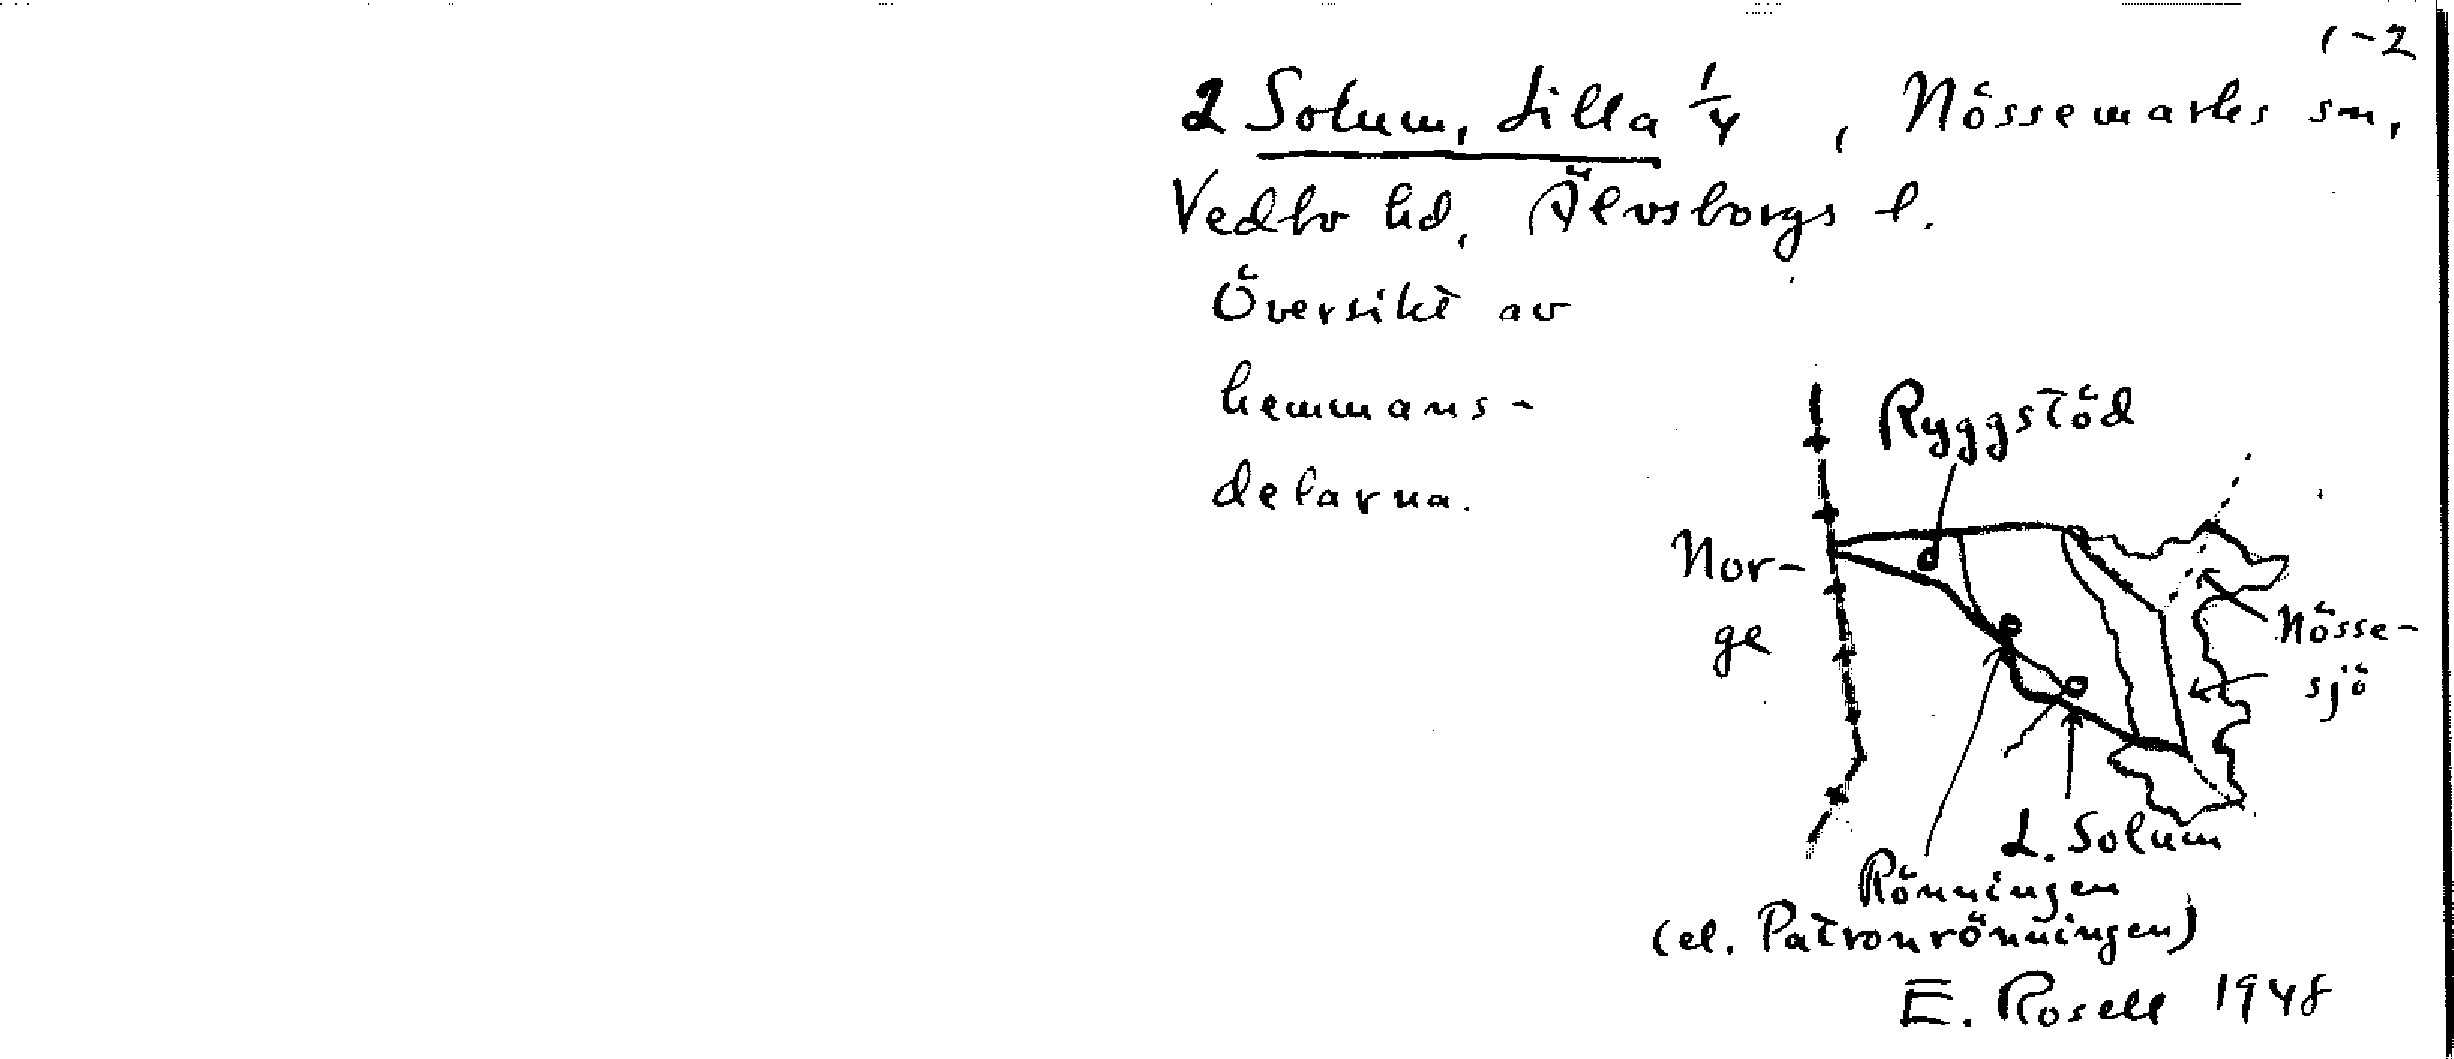 1-2
2 Solum, Lilla 1/4, Nössemarks sn,
Vedbo hd, Älvsborgs l.
Översikt av
hemmans-
delarna.
Ryggstöd
Nor-
ge
Nösse-
sjö
L. Solum
Rönningen
(el. Patronrönningen)
E. Rosell 1948